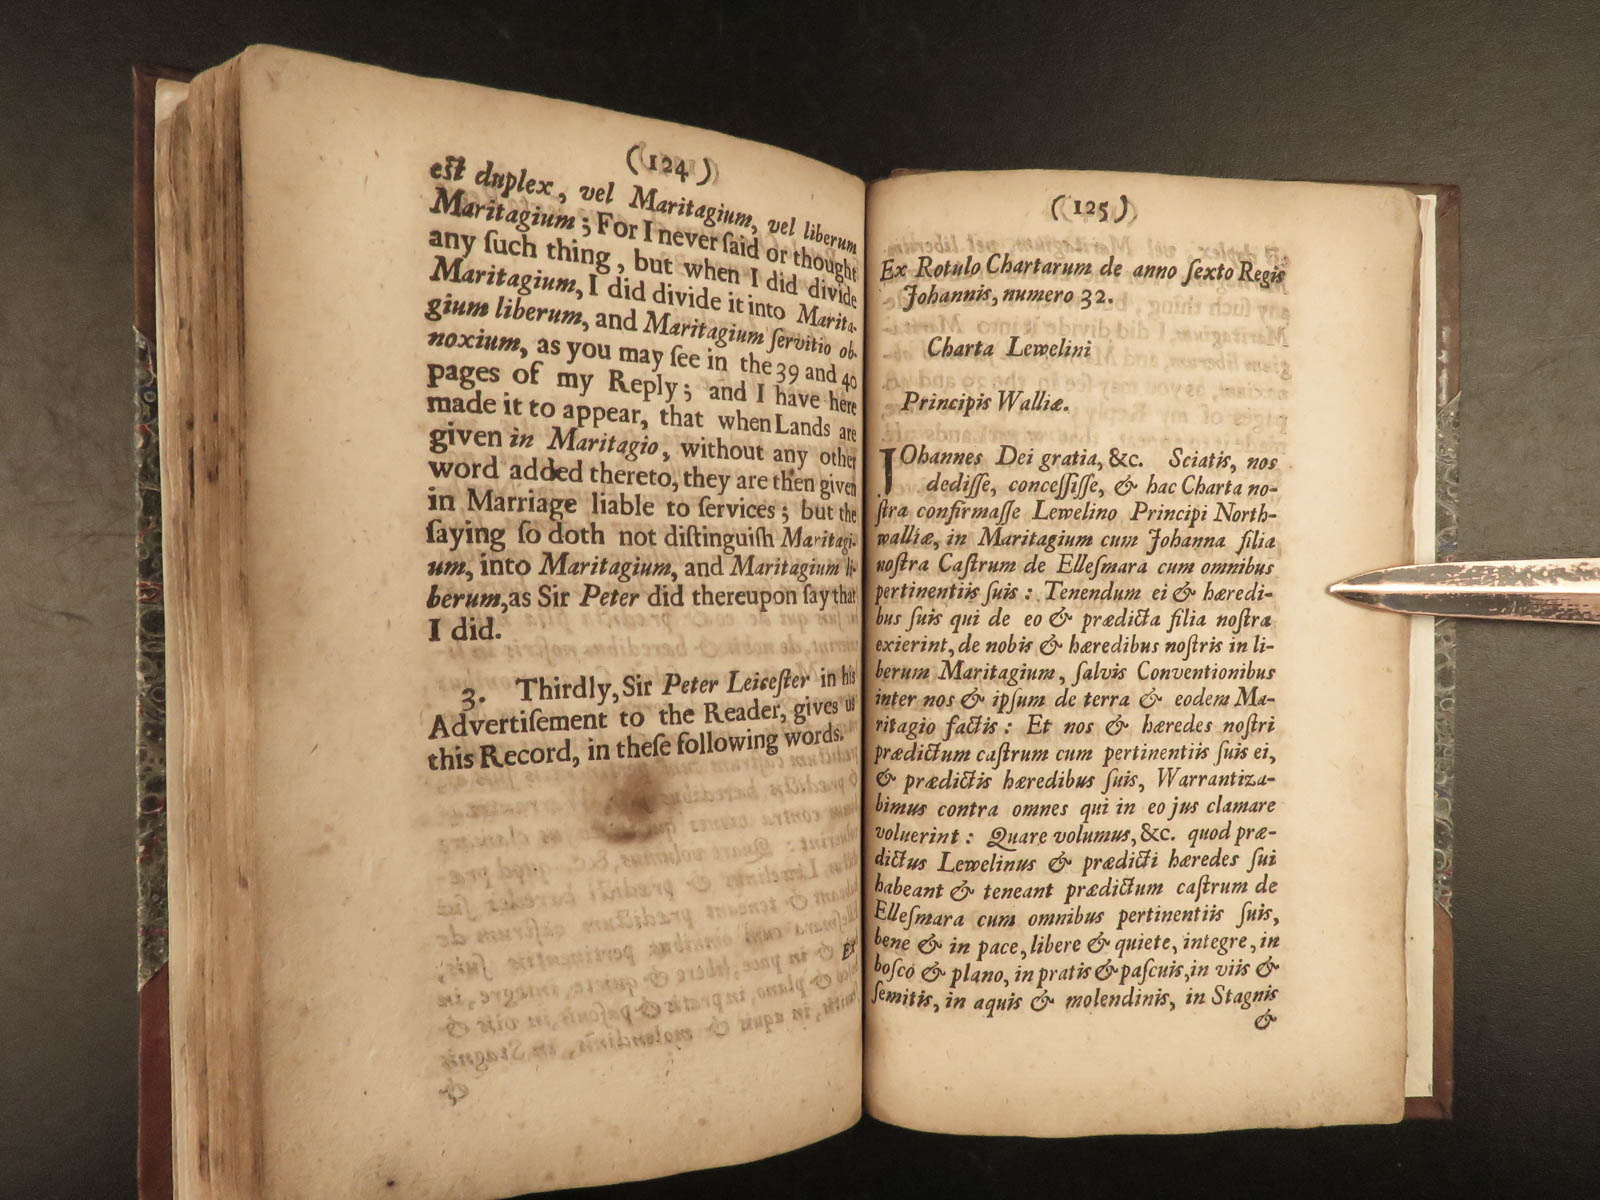 (124)
est duplex, vel Maritagium, vel liberum
Maritagium; For I never ſaid or thought
any ſuch thing, but when I did divide
Maritagium, I did divide it into Marita-
gium liberum, and Maritagium ſervitio ob-
noxium, as you may ſee in the 39 and 40
pages of my Reply; and I have here
made it to appear, that when Lands are
given in Maritagio, without any other
word added thereto, they are then given
in Marriage liable to ſervices; but the
ſaying ſo doth not diſtinguiſh Maritagi-
um, into Maritagium, and Maritagium li-
berum, as Sir Peter did thereupon ſay that
I did.
3. Thirdly, Sir Peter Leiceſter in his
Advertiſement to the Reader, gives us
this Record, in theſe following words.
Ex
(125)
Ex Rotulo Chartarum de anno ſexto Regis
Johannis, numero 32.
Charta Lewelini
Principis Walliæ.
JOhannes Dei gratia, &c. Sciatis, nos
dediſſe, conceſſiſſe, & hac Charta no-
ſtra confirmaſſe Lewelino Principi North-
walliæ, in Maritagium cum Johanna filia
noſtra Caſtrum de Elleſmara cum omnibus
pertinentiis ſuis: Tenendum ei & hæredi-
bus ſuis qui de eo & prædicta filia noſtra
exierint, de nobis & hæredibus noſtris in li-
berum Maritagium, ſalvis Conventionibus
inter nos & ipſum de terra & eodem Ma-
ritagio factis: Et nos & hæredes noſtri
prædictum caſtrum cum pertinentiis ſuis ei,
& prædictis hæredibus ſuis, Warrantiza-
bimus contra omnes qui in eo jus clamare
voluerint: Quare volumus, &c. quod præ-
dictus Lewelinus & prædicti hæredes ſui
habeant & teneant prædictum caſtrum de
Elleſmara cum omnibus pertinentiis ſuis,
bene & in pace, libere & quiete, integre, in
boſco & plano, in pratis & paſcuis, in viis &
ſemitis, in aquis & molendinis, in Stagnis
&